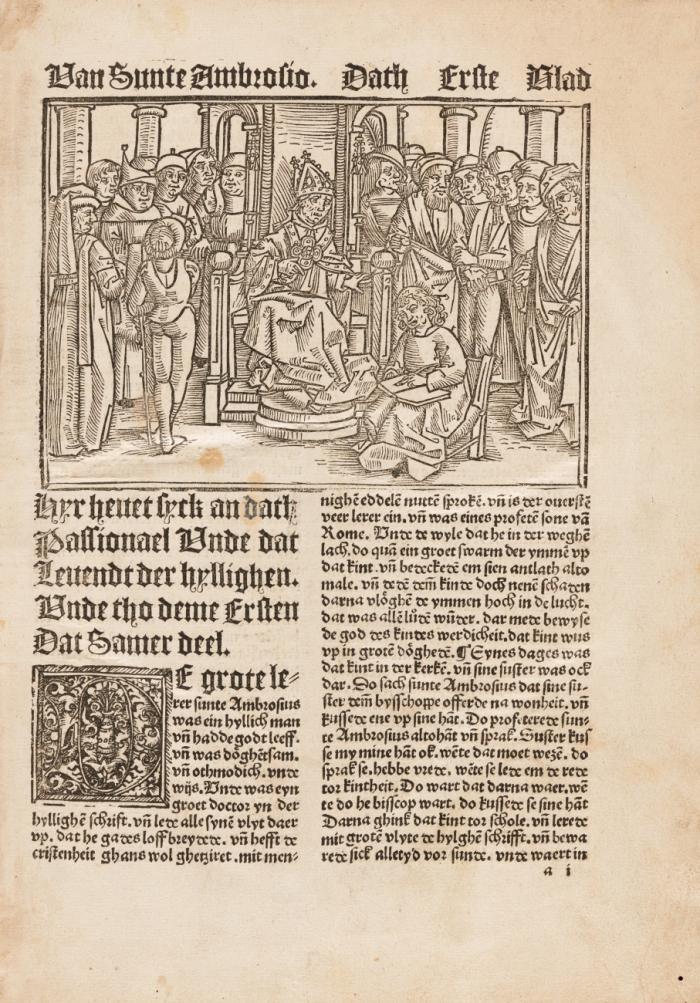 Van Sunte Ambrosio. Dath Erste Blad
Hyr heuet syck an dath
Passionael Vnde dat
Leuendt der hyllighen.
Vnde tho deme Ersten
Dat Samer deel.
DE grote le⸗
rer sunte Ambrosius
was ein hyllich man
vñ hadde godt leeff.
vñ was dȯghetsam.
vñ othmodich. vnde
wijs. Vnde was eyn
groet doctor yn der
hyllighẽ schrift. vñ lede alle synẽ vlyt daer
vp. dat he gades loff breydede. vñ hefft de
cristenheit ghans wol ghetziret. mit men⸗
nighẽ eddelẽ nuttẽ sprokẽ. vñ is der ouerstẽ
veer lerer ein. vñ was eines profetẽ sone vã
Rome. Vnde de wyle dat he in der weghẽ
lach. do quã ein groet swarm der ymmẽ vp
dat kint. vñ bedeckedẽ em sien antlath alto
male. vñ dedẽ dem̃ kinde doch nenẽ schaden
darna vlȯghẽ de ymmen hoch in de lucht.
dat was allẽ lůdẽ wũder. dar mede bewyse
de god des kindes werdicheit. dat kint wus
vp in grotẽ dȯghedẽ. ¶ Synes dages was
dat kint in der kerkẽ. vñ sine suster was ock
dar. Do sach sunte Ambrosius dat sine su⸗
ster dem̃ bysschoppe offerde na wonheit. vñ
kussede ene vp sine hãt. Do prof. terede sun⸗
te Ambrosius altohãt vñ sprak. Suster kus
se my mine hãt ok. wẽte dat moet wezẽ. do
sprak se. hebbe vrede. wẽte se lede em de rede
tor kintheit. Do wart dat darna waer. wẽ
te do he bisscop wart. do kussede se sine hãt
Darna ghink dat kint tor schole. vñ lerede
mit grotẽ vlyte de hylghẽ schrifft. vñ bewa
rede sick alletyd vor sunde. vnde waert in
a i